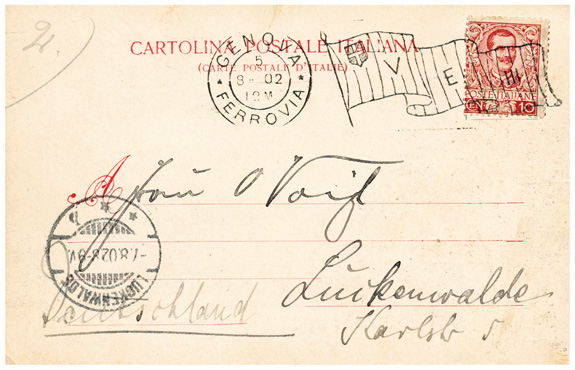 2.)
CARTOLINA POSTALE ITALIANA
(CARTE POSTALE D'ITALIE)
GENOVA
5
8-02
12M
* FERROVIA *
V E III
POSTE ITALIANE
CENT. 10
A Frau O Voigt
Luckenwalde
Karlstr 5
Deutschland
LUCKENWALDE
-7.8.02.8-9V.